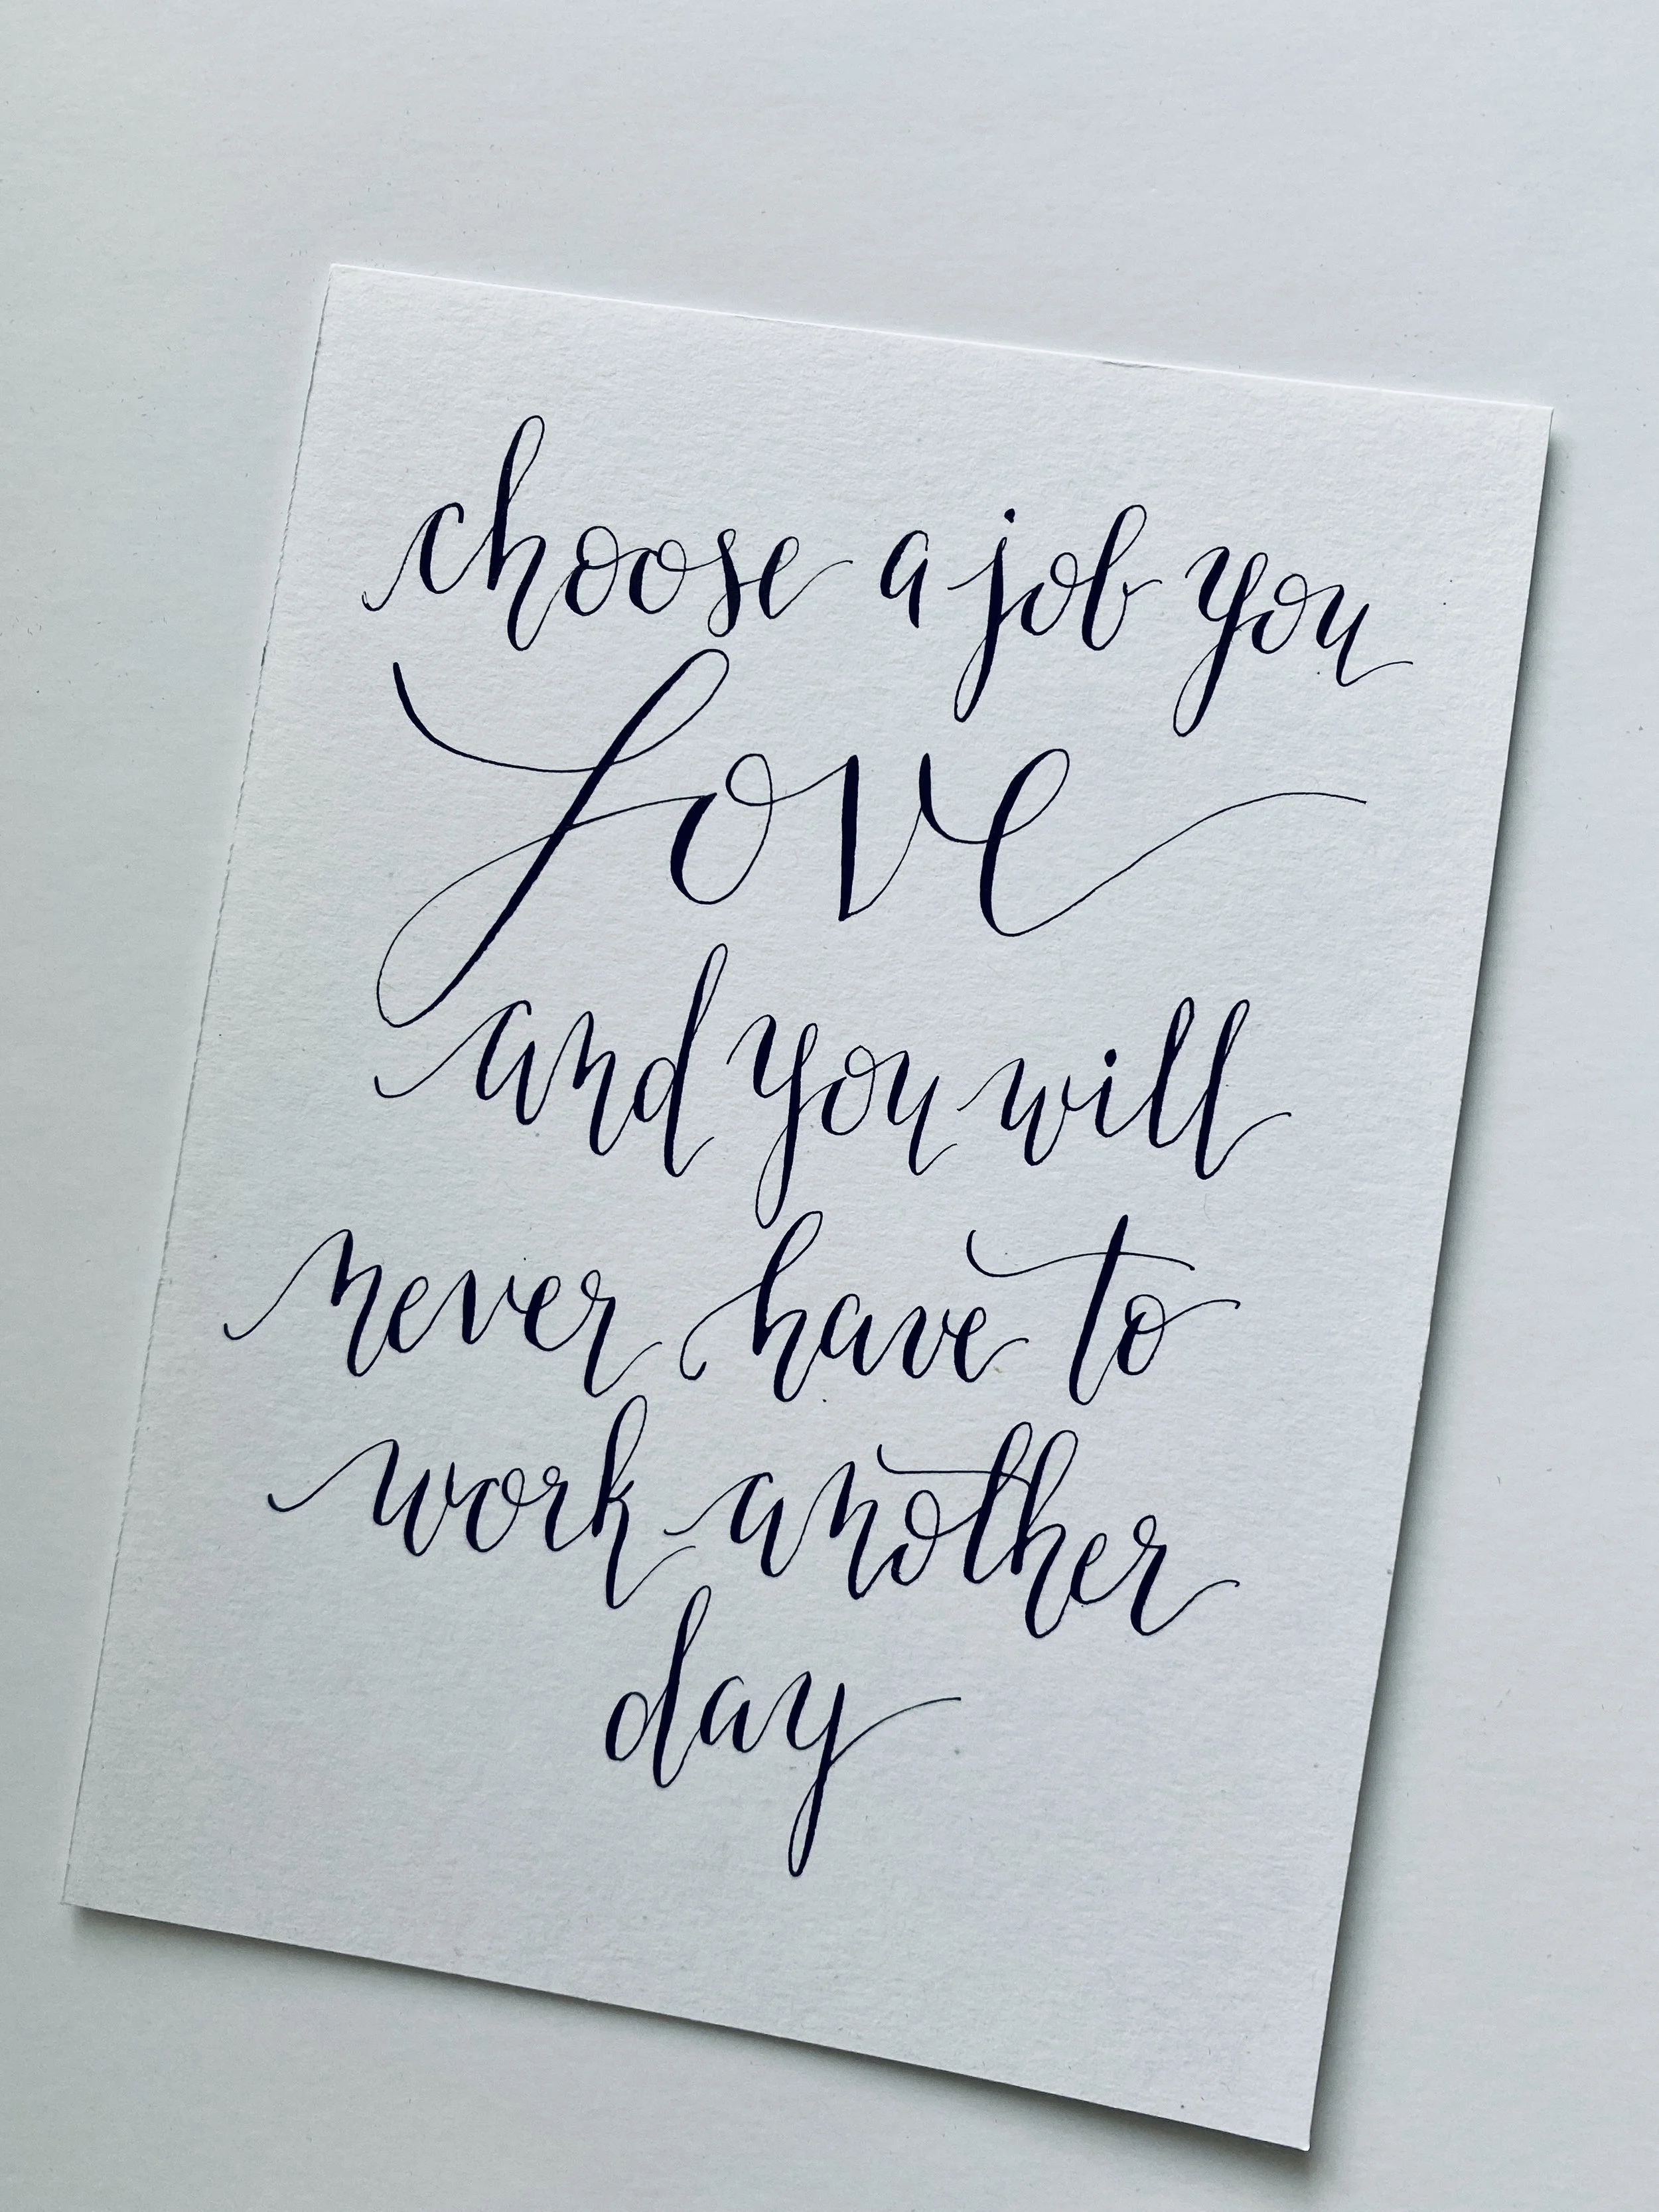 choose a job you
love
and you will
never have to
work another
day